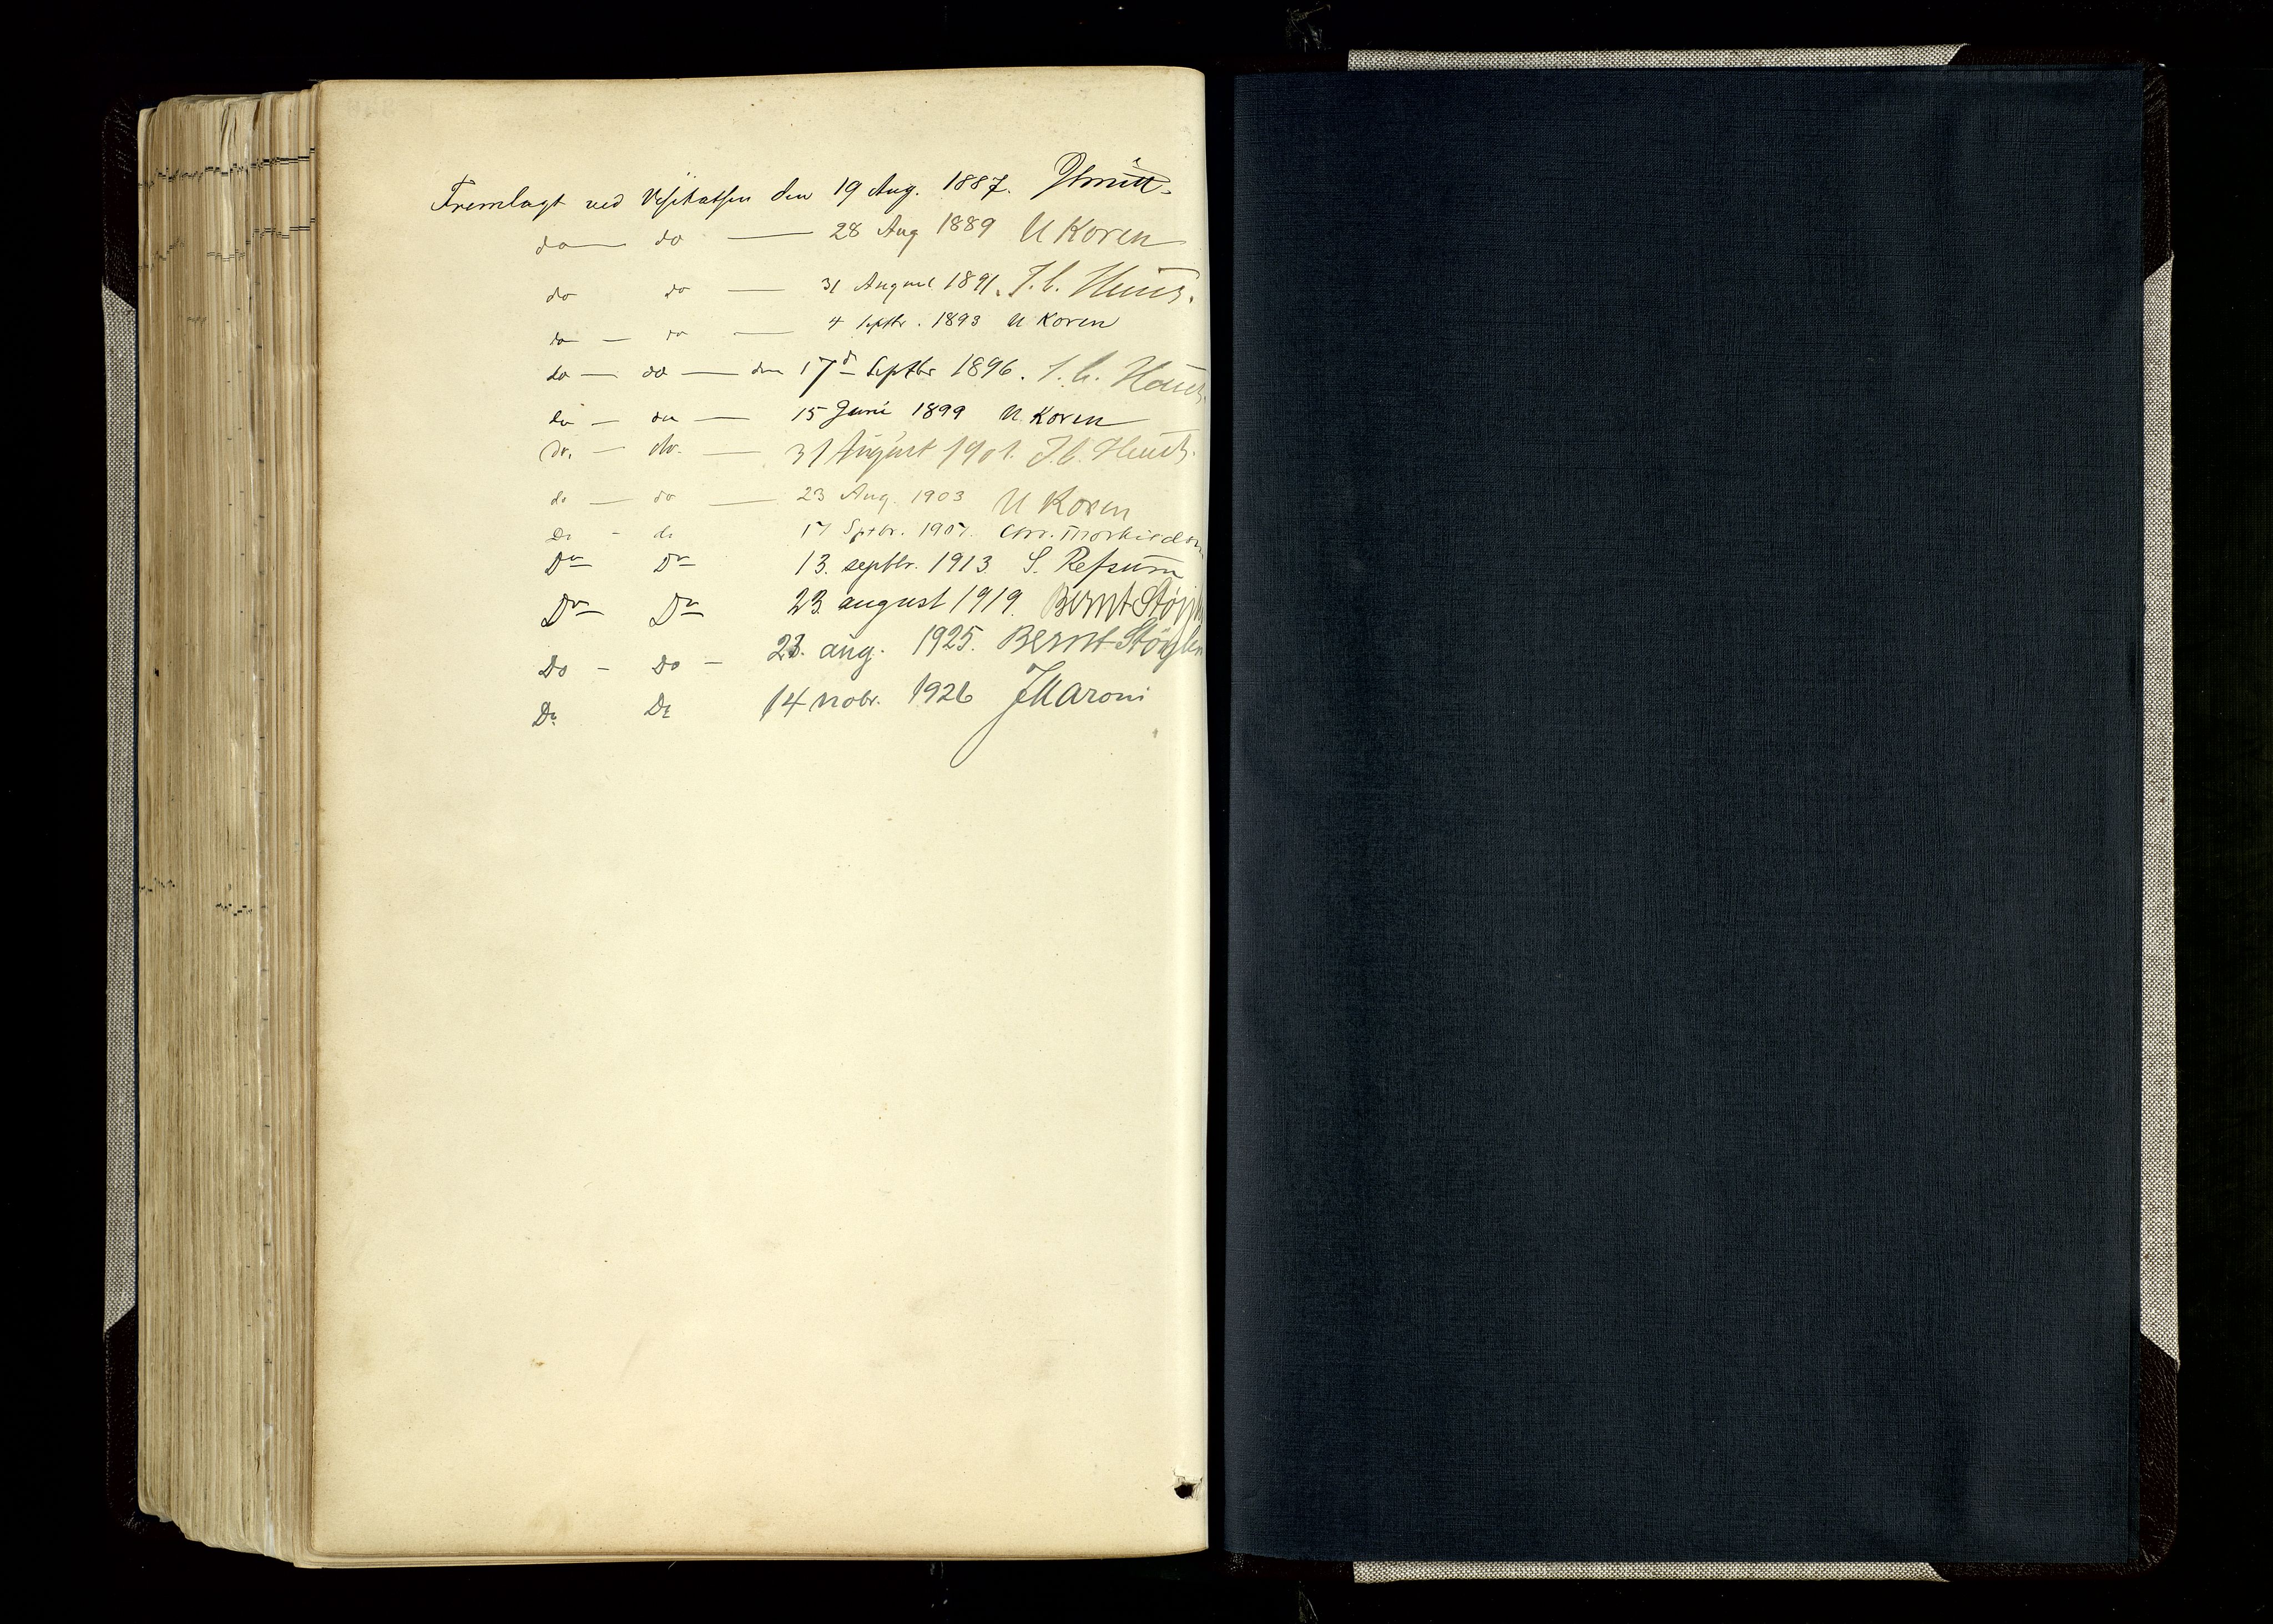 Fremlagt ved Visitatsen den 19 Aug. 1887.
do do 28 Aug 1889 U Koren
do do 31 August 1891. J. C. Heuch.
do do 4 Septbr. 1893 U Koren
do do den 17d Septbr 1896. J. C. Heuch.
do do 15 Juni 1899 U. Koren
do. do. 31 August 1901. J. C. Heuch.
do do 23 Aug. 1903 U Koren
Do do 17 Septbr. 1907. Chr.
Do Do 13. septbr. 1913. S. Refsum
Do Do 23. august 1919. Bernt Støylen
Do Do 23. aug. 1925. Bernt Støylen
Do Do 14 novbr. 1926 J Maroni